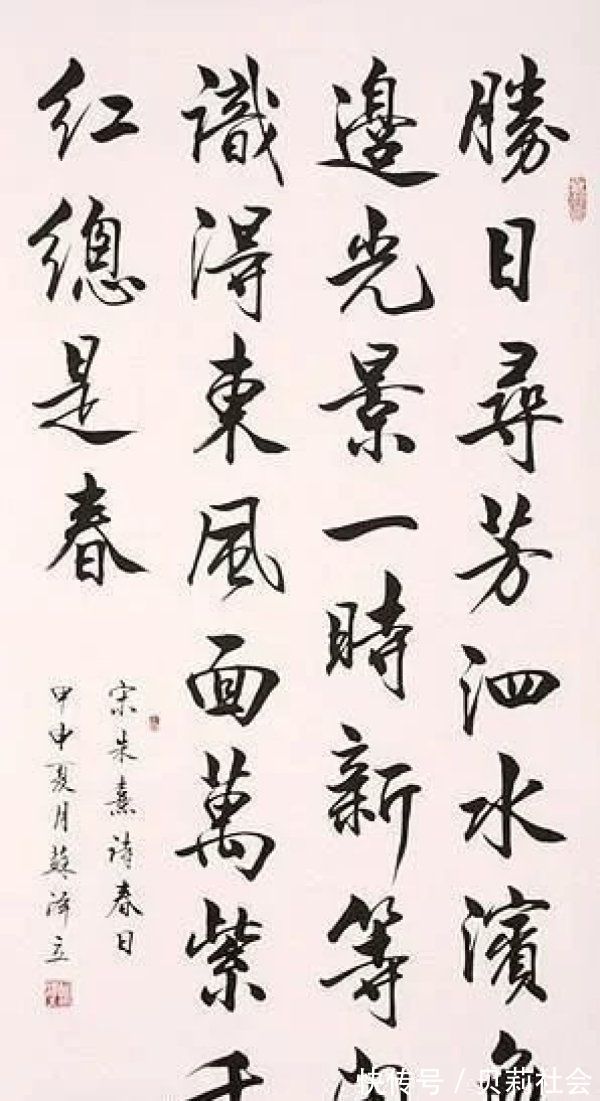 勝日尋芳泗水濱
邊光景一時新等
識得東風面萬紫千
紅總是春
宋朱熹詩春日
甲申夏月蘇澤立
快传号 / 贝莉社会